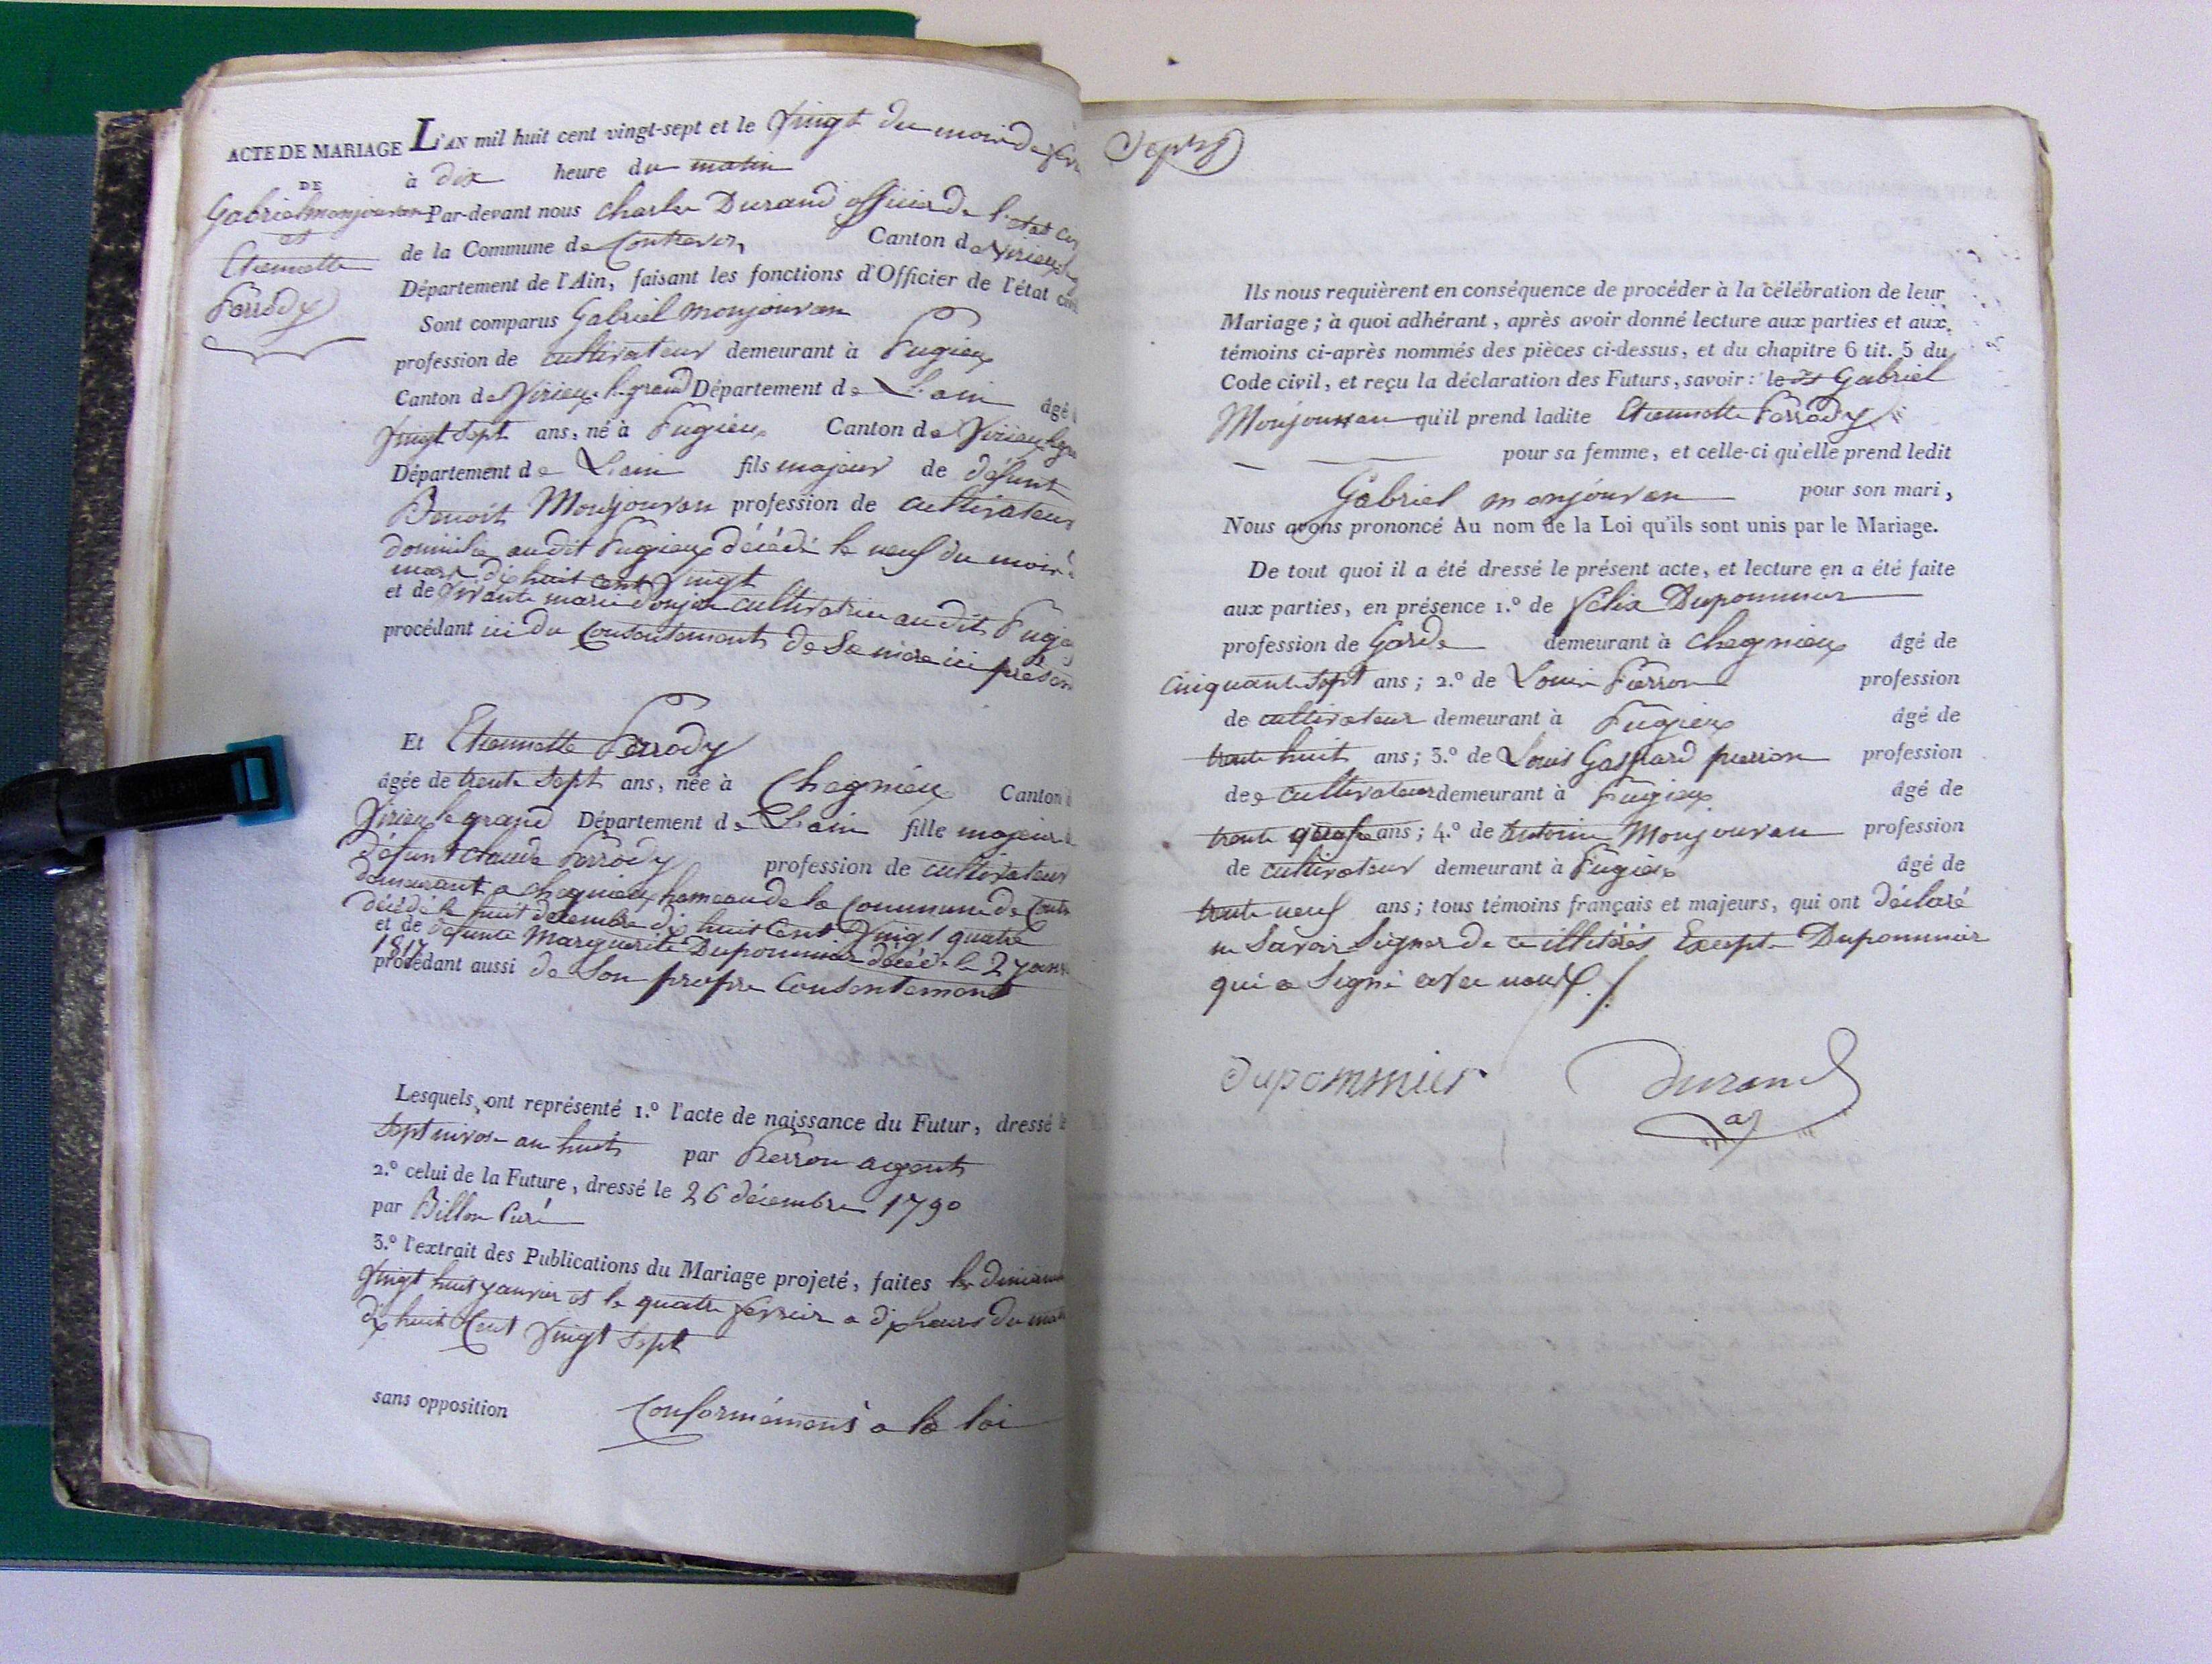 ACTE DE MARIAGE
DE
Gabriel monjouvan
et
Etiennette
Ferrody
L'AN mil huit cent vingt-sept et le Vingt du mois de
à dix heure du matin
Par-devant nous Charles Durand officier de l'etat
de la Commune de Contrevoz, Canton de Virieu
Département de l'Ain, faisant les fonctions d'Officier de l'état civil
Sont comparus Gabriel monjouvan
profession de cultivateur demeurant à Pugieu
Canton de Virieu le grand Département de L'ain âgé
Vingt sept ans, né à Pugieu Canton de Virieu le
Département de L'ain fils majeur de défunt
Benoit Monjouvan profession de cultivateur
domicilié au dit Pugieu décédé le neuf du mois
mars dix huit cent Vingt
et de Vivante marie cultivatrice au dit
procédant ici du consentement de Sa mere ici
Et Etiennette Ferrody
âgée de trente sept ans, née à Chegnieu Canton
Virieu le grand Département de L'ain fille majeure
défunt claude Ferrody profession de cultivateur
demeurant a chegnieu hameau de la Commune de
décédé le huit decembre dix huit Cent Vingt quatre
et de defunte Marguerite Dupommier décédé le 2
1817
procédant aussi de Son propre Consentement
Lesquels ont représenté 1.º l'acte de naissance du Futur, dressé
Sept nivose an huit par Perron agent
2.º celui de la Future, dressé le 26 décembre 1790
par Billon Curé
3.º l'extrait des Publications du Mariage projeté, faites
Vingt huit janvier et le quatre fevrier a dix heures du
dix huit Cent Vingt Sept
sans opposition Conformément a la loi
Ils nous requièrent en conséquence de procéder à la célébration de leur
Mariage ; à quoi adhérant, après avoir donné lecture aux parties et aux
témoins ci-après nommés des pièces ci-dessus, et du chapitre 6 tit. 5 du
Code civil, et reçu la déclaration des Futurs, savoir : le Gabriel
Monjouvan qu'il prend ladite Etiennette Ferrody
pour sa femme, et celle-ci qu'elle prend ledit
Gabriel monjouvan pour son mari,
Nous avons prononcé Au nom de la Loi qu'ils sont unis par le Mariage.
De tout quoi il a été dressé le présent acte, et lecture en a été faite
aux parties, en présence 1.º de Félix Dupommier
profession de Garde demeurant à Chegnieu âgé de
Cinquante sept ans ; 2.º de Louis Perron profession
de cultivateur demeurant à Pugieu âgé de
trente huit ans ; 3.º de Louis Gaspard perron profession
de cultivateur demeurant à Pugieu âgé de
trente quatre ans ; 4.º de Antoine Monjouvan profession
de cultivateur demeurant à Pugieu âgé de
trente neuf ans ; tous témoins français et majeurs, qui ont déclaré
ne Savoir Signer de ce illitérés Excepté Dupommier
qui a Signé avec nous
Dupommier Durand